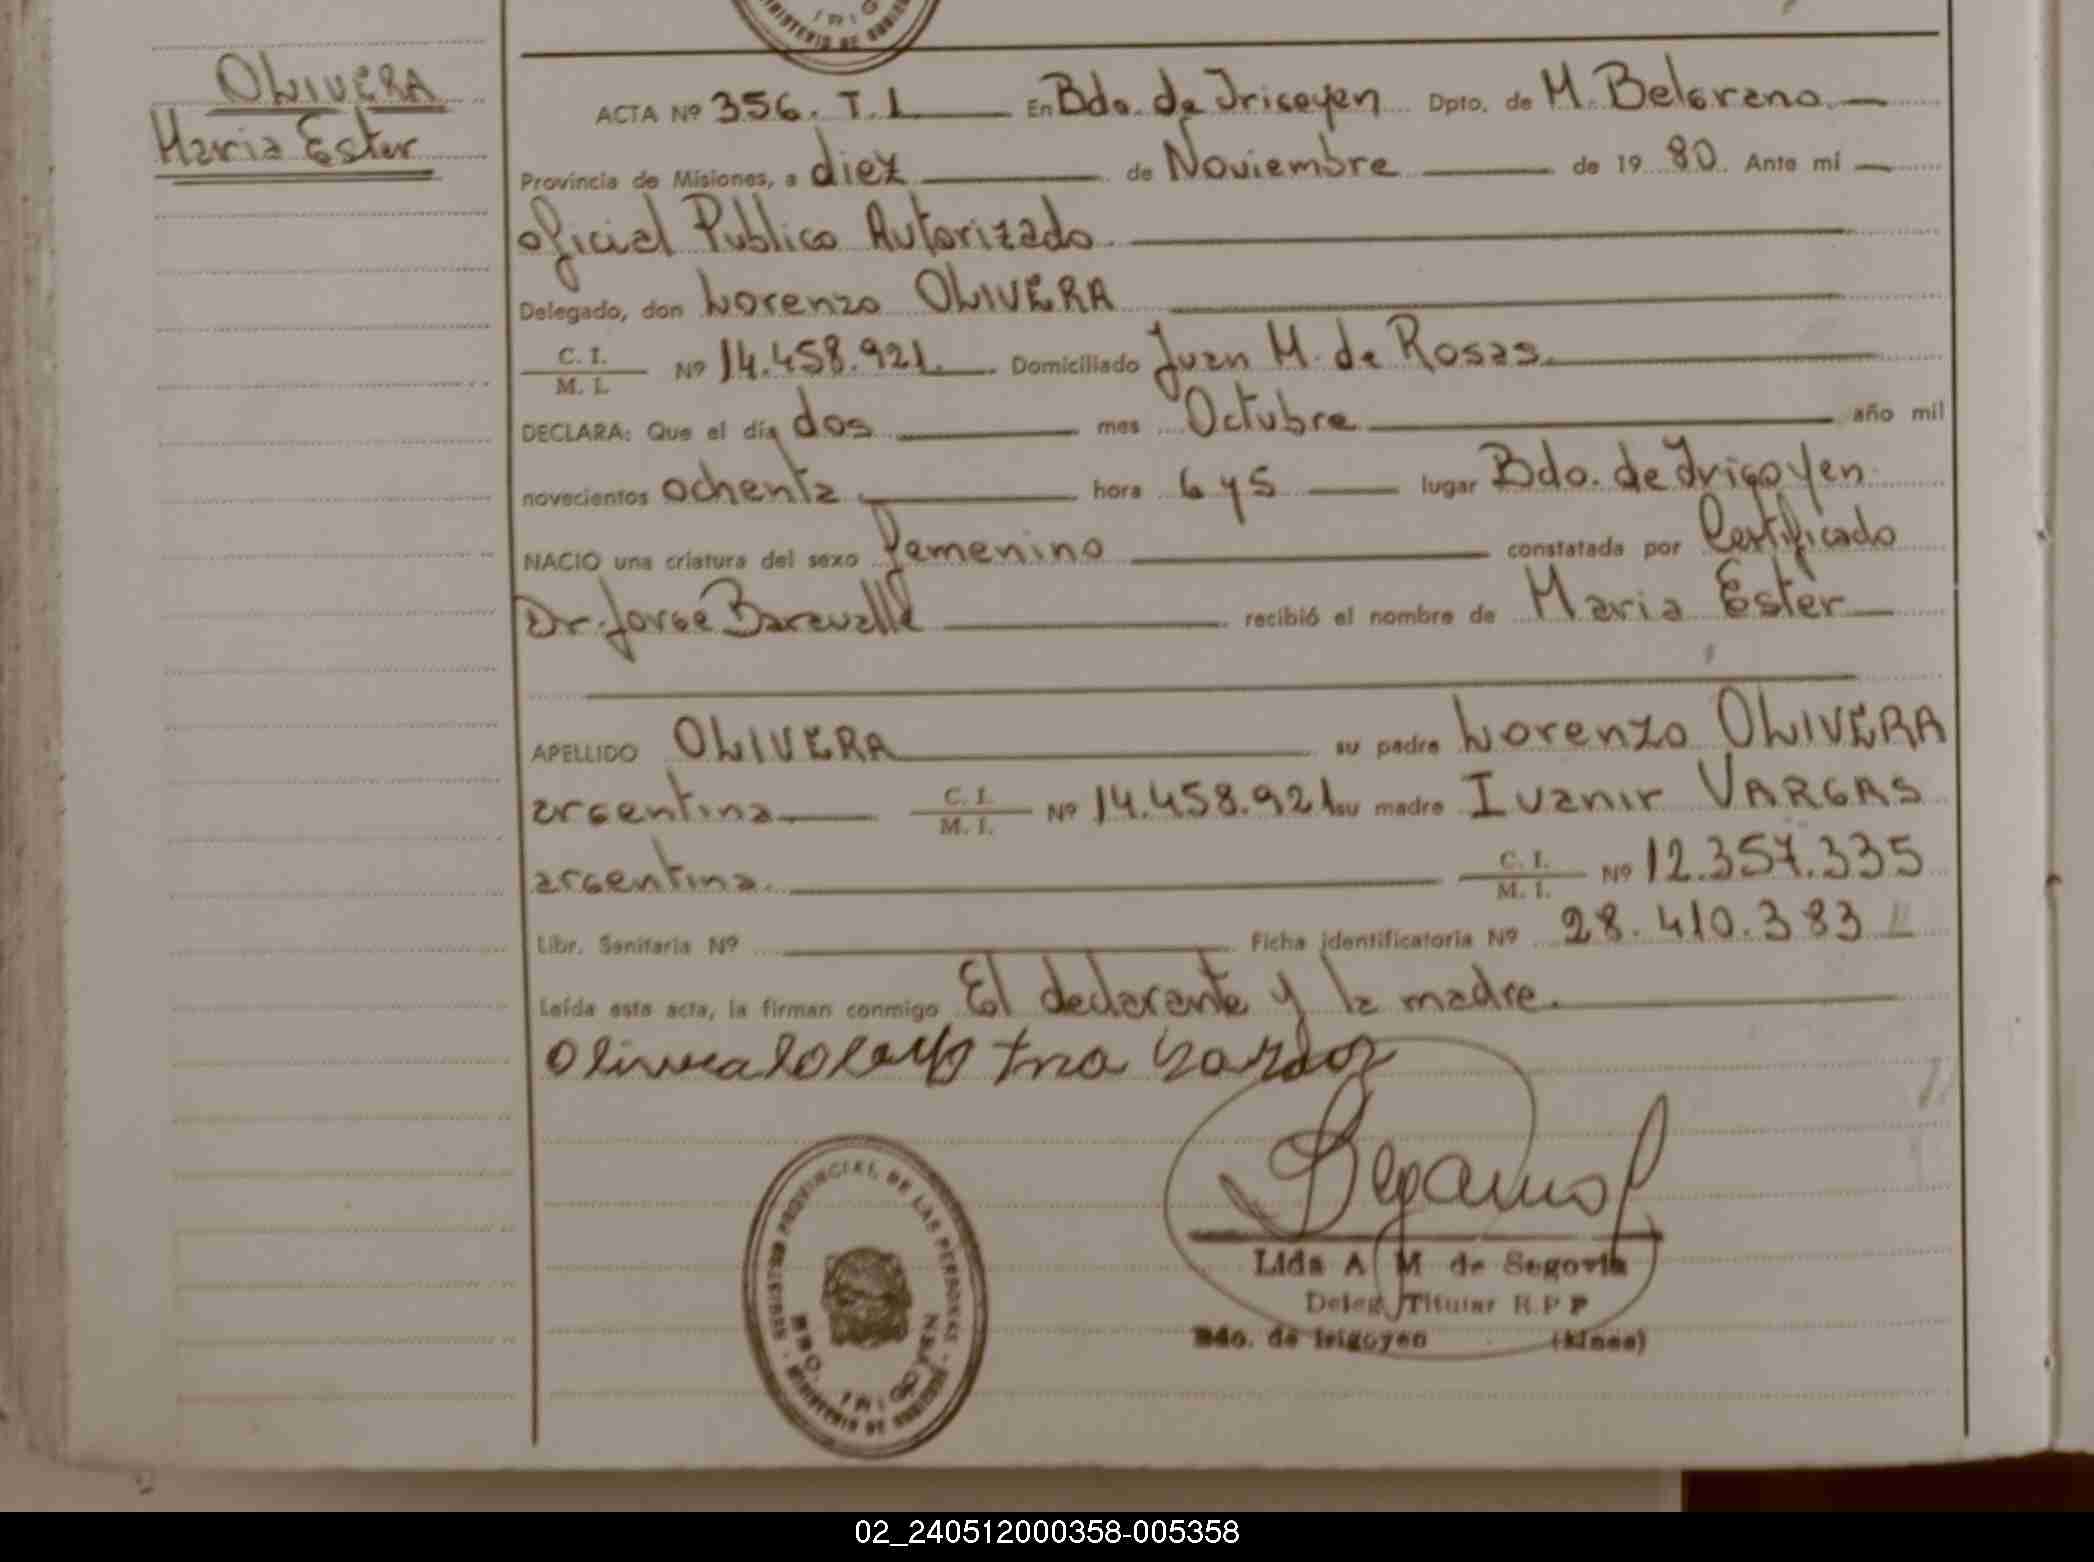 OLIVERA
Maria Ester
ACTA Nº 356. T. I En Bdo. de Irigoyen Dpto. de M. Belgrano
Provincia de Misiones, a diez de Noviembre de 1980. Ante mí
oficial Publico Autorizado
Delegado, don Lorenzo OLIVERA
C. I. / M. I. Nº 14.458.921. Domiciliado Juan M. de Rosas
DECLARA: Que el día dos mes Octubre año mil
novecientos ochenta hora 6 y 5 lugar Bdo. de Irigoyen
NACIO una criatura del sexo femenino constatada por Certificado
Dr. Jorge Baravalle recibió el nombre de Maria Ester
APELLIDO OLIVERA su padre Lorenzo OLIVERA
argentina C. I. / M. I. Nº 14.458.921 su madre Ivanir VARGAS
argentina. C. I. / M. I. Nº 12.357.335
Libr. Sanitaria Nº Ficha identificatoria Nº 28.410.383
Leída esta acta, la firman conmigo El declarante y la madre.
REGISTRO PROVINCIAL DE LAS PERSONAS - MISIONES - MINISTERIO DE GOBIERNO
BDO. IRIGOYEN
Lida A M de Segovia
Deleg. Titular R.P P
Bdo. de Irigoyen (Mnes)
02_240512000358-005358